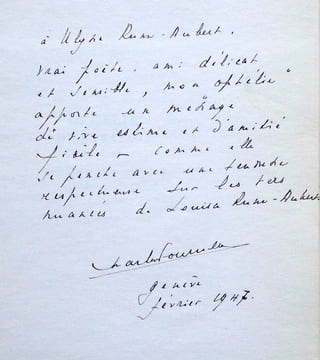 à Ulysse
vrai poëte. ami délicat
et sensible, "mon ophélie"
apporte un message
de vive estime et d'amitié
fidèle — comme elle
se penche avec une tendresse
respectueuse sur les vers
nuancés de Louisa
Charles Fournet
genève
février 1947.